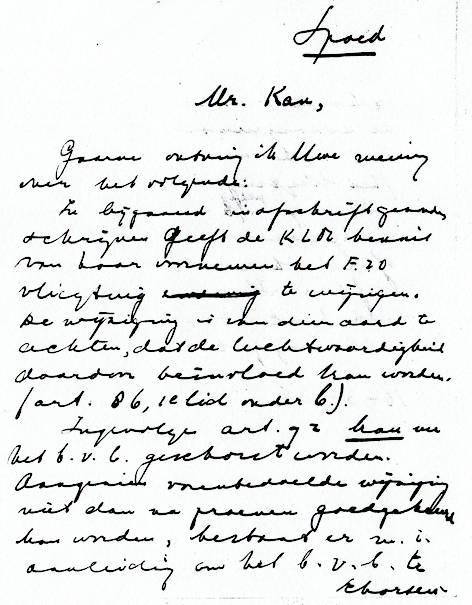 Spoed
Mr. Kan,
Gaarne ontving ik Uwe mening
over het volgende:
In bijgaand in afschrift gaande
schrijven geeft de KLM kennis
van haar voornemen het F.20
vliegtuig te wijzigen.
De wijziging is van dien aard te
achten, dat de luchtwaardigheid
daardoor beïnvloed kan worden.
(art. 86, 1e lid onder b.).
Ingevolge art. 92 kan nu
het b.v.l. geschorst worden.
Aangezien voorbedoelde wijziging
niet dan na proeven goedgekeurd
kan worden, bestaat er m.i.
aanleiding om het b.v.l. te
schorsen